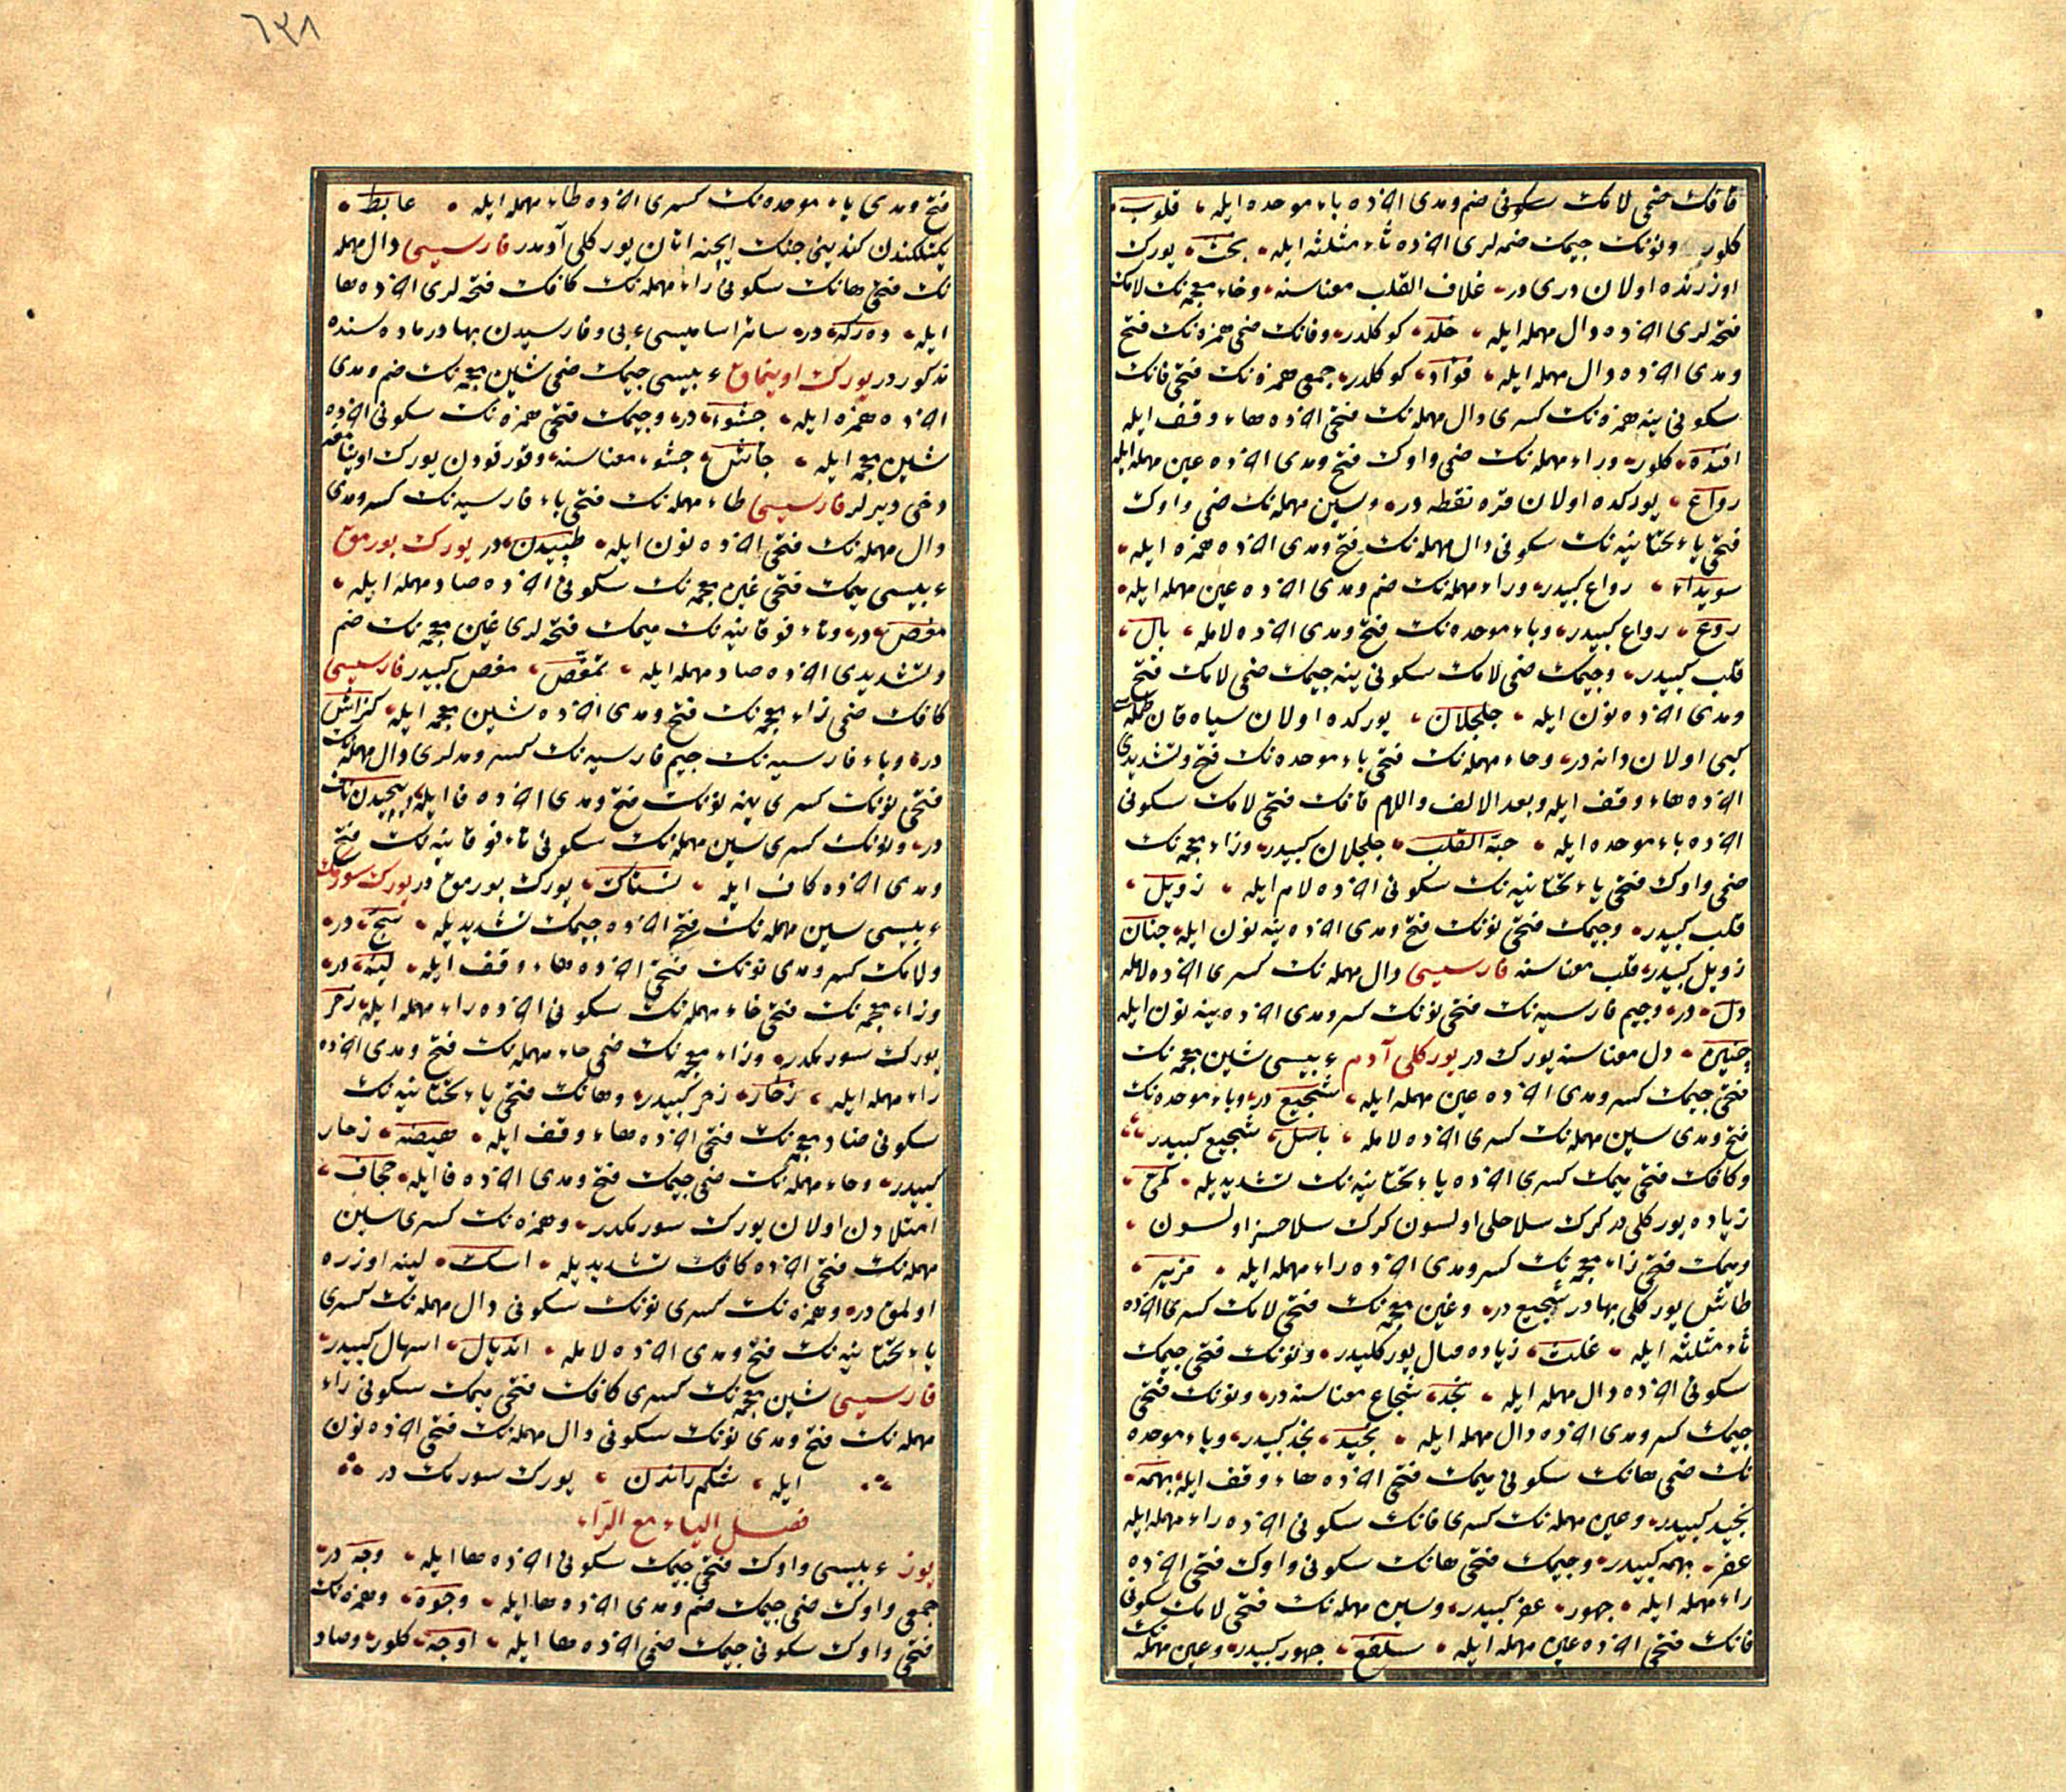 قافك ضمى لامك سكونى ضم ومدى اخرده باء موحده ايله قلوب
كلور ونونك جيمك ضمه لرى اخرده ثاء مثلثه ايله نجث يورك
اوزرنده اولان درى در غلاف القلب معناسنه وخاء معجمه نك لامك
فتحه لرى اخرده دال مهمله ايله خلد كوكلدر وفانك ضمى همزه نك فتح
ومدى اخرده دال مهمله ايله فؤاد كوكلدر جمعى همزه نك فتحى فانك
سكونى ينه همزه نك كسرى دال مهمله نك فتحى اخرده هاء وقف ايله
افئدة كلور وراء مهمله نك ضمى واوك فتح ومدى اخرده عين مهمله ايله
رواع يوركده اولان قره نقطه در وسين مهمله نك ضمى واوك
فتحى ياء تحتانيه نك سكونى دال مهمله نك فتح ومدى اخرده همزه ايله
سويداء رواع كبيدر وراء مهمله نك ضم ومدى اخرده عين مهمله ايله
روع رواع كبيدر وباء موحده نك فتح ومدى اخرده لامله بال
قلب كبيدر وجيمك ضمى لامك سكونى ينه جيمك ضمى لامك فتح
ومدى اخرده نون ايله جلجلان يوركده اولان سياه قان
كبى اولان دانه در وحاء مهمله نك فتحى باء موحده نك فتح وتشديدى
اخرده هاء وقف ايله وبعد الالف واللام قافك فتحى لامك سكونى
اخرده باء موحده ايله حبة القلب جلجلان كبيدر وزاء معجمه نك
ضمى واوك فتحى ياء تحتانيه نك سكونى اخرده لام ايله زويل
قلب كبيدر وجيمك فتحى نونك فتح ومدى اخرده ينه نون ايله جنان
زويل كبيدر قلب معناسنه فارسيسى دال مهمله نك كسرى اخرده لامله
دل در وجيم فارسيه نك فتحى نونك كسر ومدى اخرده ينه نون ايله
چنين دل معناسنه يورك در يوركلى آدم عربيسى شين معجمه نك
فتحى جيمك كسر ومدى اخرده عين مهمله ايله شجيع در وباء موحده نك
فتح ومدى سين مهمله نك كسرى اخرده لامله باسل شجيع كبيدر
وكافك فتحى ميمك كسرى اخرده ياء تحتانيه نك تشديديله كمى
زياده يوركلى در كرك سلاحلى اولسون كرك سلاحسز اولسون
وميمك فتحى زاء معجمه نك كسر ومدى اخرده راء مهمله ايله مزير
طاش يوركلى بهادر شجيع در وغين معجمه نك فتحى لامك كسرى اخرده
ثاء مثلثه ايله غلث زياده قتال يوركليدر ونونك فتحى جيمك
سكونى اخرده دال مهمله ايله نجد شجاع معناسنه در ونونك فتحى
جيمك كسر ومدى اخرده دال مهمله ايله نجيد نجد كبيدر وباء موحده
نك ضمى هانك سكونى ميمك فتحى اخرده هاء وقف ايله بهمة
نجيد كبيدر وعين مهمله نك كسرى فانك سكونى اخرده راء مهمله ايله
عفر بهمه كبيدر وجيمك فتحى هانك سكونى واوك فتحى اخرده
راء مهمله ايله جهور عفر كبيدر وسين مهمله نك فتحى لامك سكونى
فانك فتحى اخرده عين مهمله ايله سلفع جهور كبيدر وعين مهمله
٦٣٨
فتح ومدى باء موحده نك كسرى اخرده طاء مهمله ايله عابط
يكتلكندن كندينى جنك ايچنه اتان يوركلى آدمدر فارسيسى دال مهمله
نك فتحى هانك سكونى راء مهمله نك كافك فتحه لرى اخرده ها
ايله دهركه در سائر اساميسى عربى وفارسيدن بهادر ماده سنده
مذكوردر يورك اوينماق عربيسى جيمك ضمى شين معجمه نك ضم ومدى
اخرده همزه ايله جشوء در وجيمك فتحى همزه نك سكونى اخرده
شين معجمه ايله جأش جشوء معناسنه وقورقودن يورك اويناتمغه
دخى ديرلر فارسيسى طاء مهمله نك فتحى باء فارسيه نك كسر ومدى
دال مهمله نك فتحى اخرده نون ايله طپيدن در يورك بورمق
عربيسى ميمك فتحى غين معجمه نك سكونى اخرده صاد مهمله ايله
مغص در وتاء فوقانيه نك ميمك فتحه لرى غين معجمه نك ضم
وتشديدى اخرده صاد مهمله ايله تمغص مغص كبيدر فارسيسى
كافك ضمى زاء معجمه نك فتح ومدى اخرده شين معجمه ايله كزاش
در وباء فارسيه نك جيم فارسيه نك كسر ومدلرى دال مهمله نك
فتحى نونك كسرى ينه نونك فتح ومدى اخرده فا ايله پيچيدن ناف
در ونونك كسرى سين مهمله نك سكونى تاء فوقانيه نك فتح
ومدى اخرده كاف ايله نستاك يورك بورمق در يورك سورمك
عربيسى سين مهمله نك فتح اخرده جيمك تشديديله سج در
ولامك كسر ومدى نونك فتحى اخرده هاء وقف ايله لينة در
وزاء معجمه نك فتحى حاء مهمله نك سكونى اخرده راء مهمله ايله زحر
يورك سورمكدر وزاء معجمه نك ضمى حاء مهمله نك فتح ومدى اخرده
راء مهمله ايله زحار زحر كبيدر وهانك فتحى ياء تحتانيه نك
سكونى ضاد معجمه نك فتحى اخرده هاء وقف ايله هيضة زحار
كبيدر وحاء مهمله نك ضمى جيمك فتح ومدى اخرده فا ايله حجاف
امتلادن اولان يورك سورمكدر وهمزه نك كسرى سين
مهمله نك فتحى اخرده كافك تشديديله اسك لينه اوزره
اولمق در وهمزه نك كسرى نونك سكونى دال مهمله نك كسرى
ياء تحتانيه نك فتح ومدى اخرده لامله انديال اسهال كبيدر
فارسيسى شين معجمه نك كسرى كافك فتحى ميمك سكونى راء
مهمله نك فتح ومدى نونك سكونى دال مهمله نك فتحى اخرده نون
ايله شكم راندن يورك سورمك در
فصل الياء مع الزاء
يوز عربيسى واوك فتحى جيمك سكونى اخرده ها ايله وجه در
جمعى واوك ضمى جيمك ضم ومدى اخرده ها ايله وجوه وهمزه نك
فتحى واوك سكونى جيمك ضمى اخرده ها ايله اوجه كلور وصاد